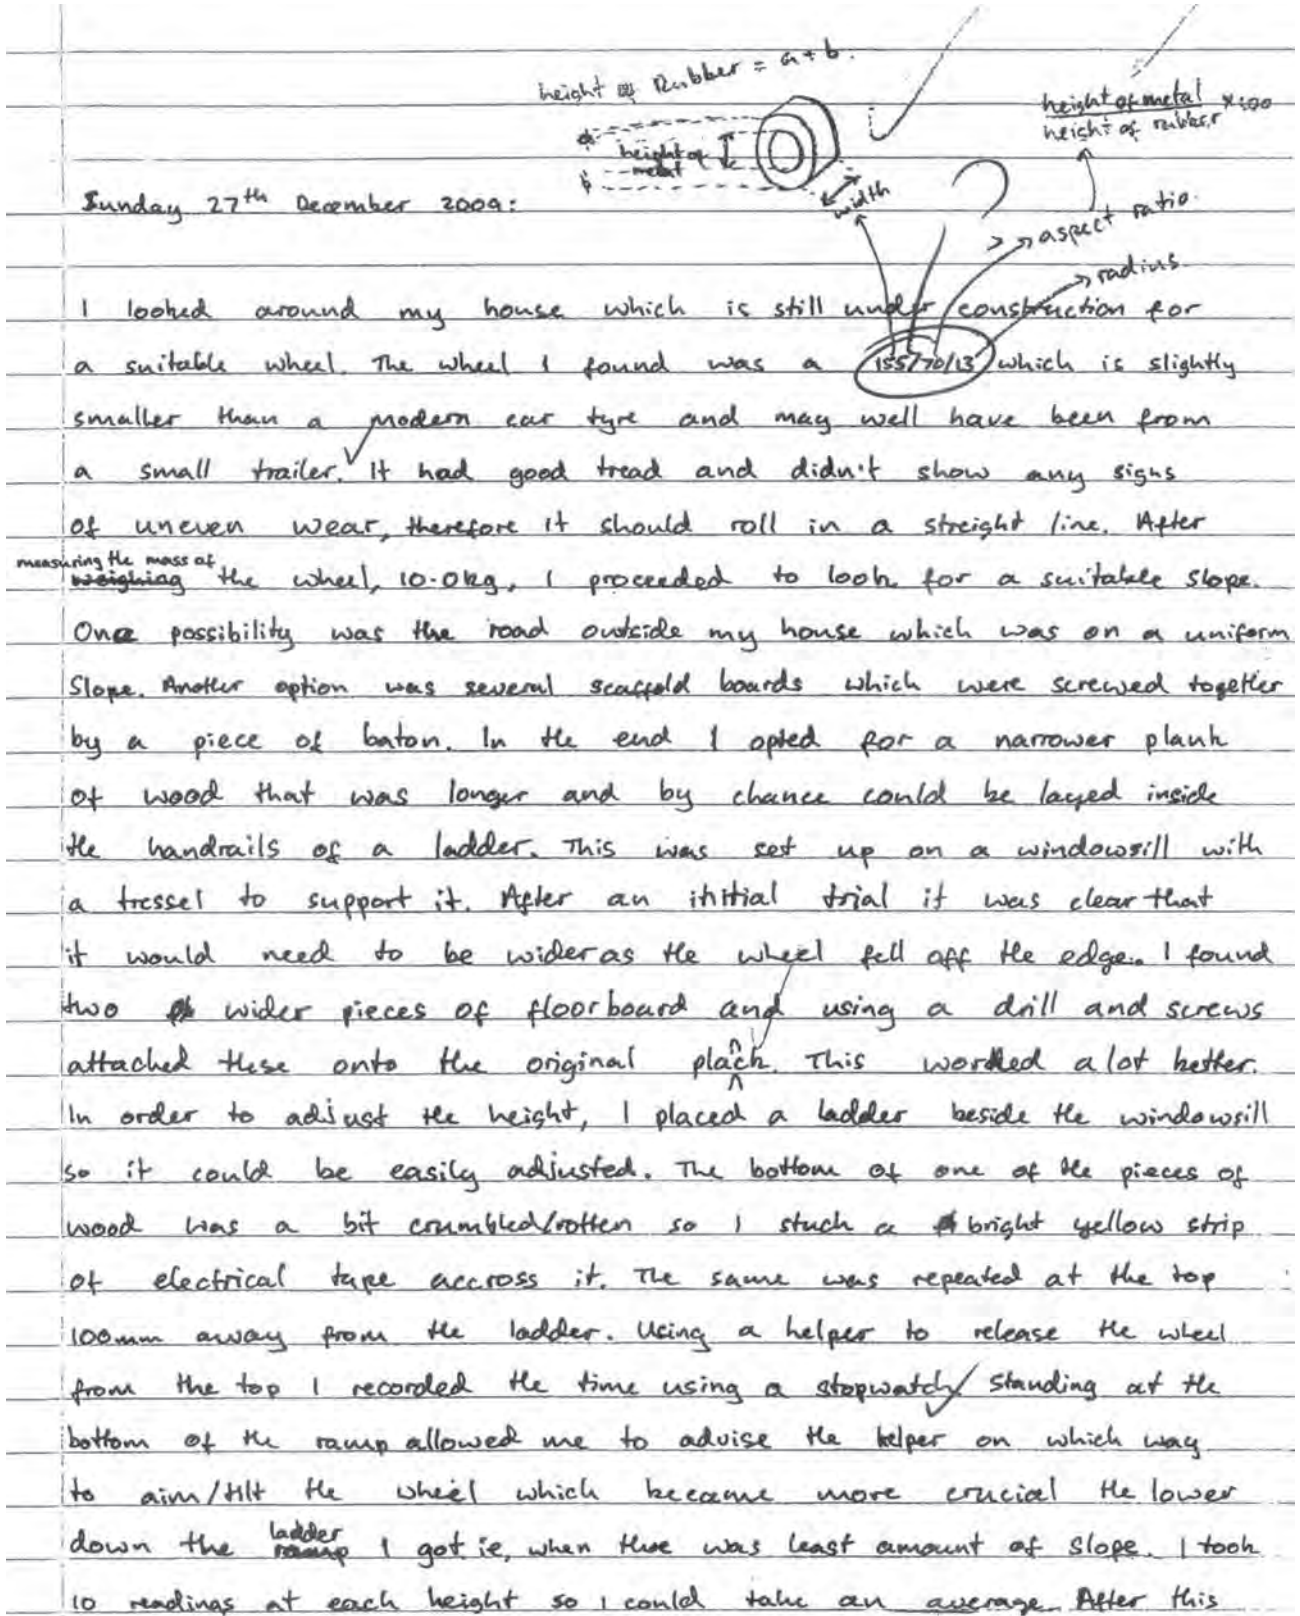 height of Rubber = a + b.
height of metal
a
b
width
height of metal × 100
height of rubber
aspect ratio.
radius.
Sunday 27th December 2009:
I looked around my house which is still under construction for
a suitable wheel. The wheel I found was a 155/70/13 which is slightly
smaller than a modern car tyre and may well have been from
a small trailer. It had good tread and didn't show any signs
of uneven wear, therefore it should roll in a streight line. After
measuring the mass of
weighing the wheel, 10.0kg, I proceeded to look for a suitable slope.
One possibility was the road outside my house which was on a uniform
Slope. Another option was several scaffold boards which were screwed together
by a piece of baton. In the end I opted for a narrower plank
of wood that was longer and by chance could be layed inside
the handrails of a ladder. This was set up on a windowsill with
a tressel to support it. After an initial trial it was clear that
it would need to be wider as the wheel fell off the edge. I found
two wider pieces of floorboard and using a drill and screws
attached these onto the original planck. This worked a lot better.
In order to adjust the height, I placed a ladder beside the windowsill
so it could be easily adjusted. The bottom of one of the pieces of
wood was a bit crumbled/rotten so I stuck a bright yellow strip
of electrical tape accross it. The same was repeated at the top
100mm away from the ladder. Using a helper to release the wheel
from the top I recorded the time using a stopwatch. Standing at the
bottom of the ramp allowed me to advise the helper on which way
to aim/tilt the wheel which became more crucial the lower
down the ladder ramp I got ie, when there was least amount of slope. I took
10 readings at each height so I could take an average. After this